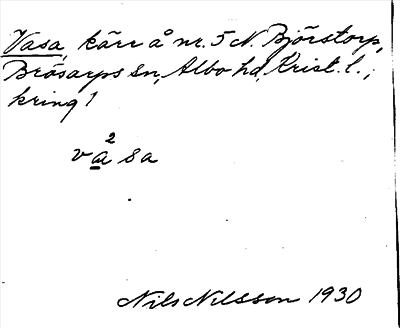 Vasa, kärr å nr. 5 N. Björstorp,
Brösarps sn, Albo hd, Krist. l.,
kring 1
v a² s a
Nils Nilsson 1930